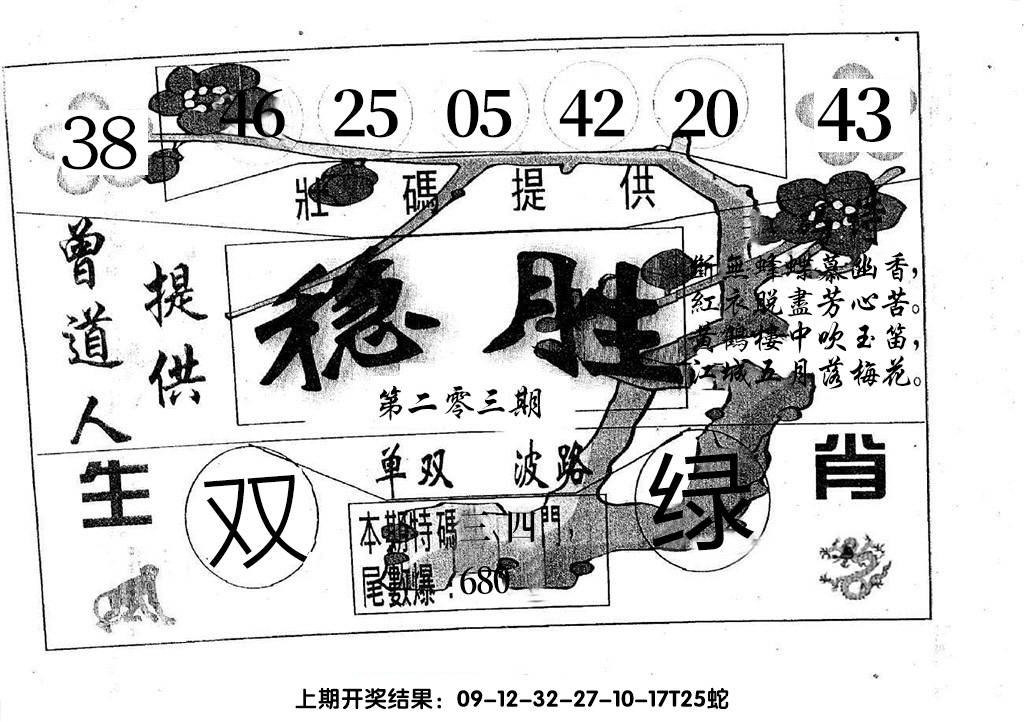 38 46 25 05 42 20 43
壯碼提供
曾道人
提供
稳胜
第二零三期
断無蜂蝶慕幽香，
紅衣脱盡芳心苦。
黃鶴樓中吹玉笛，
江城五月落梅花。
单双 波路
生肖
双
绿
本期特碼三、四門，
尾數爆：680
上期开奖结果：09-12-32-27-10-17T25蛇